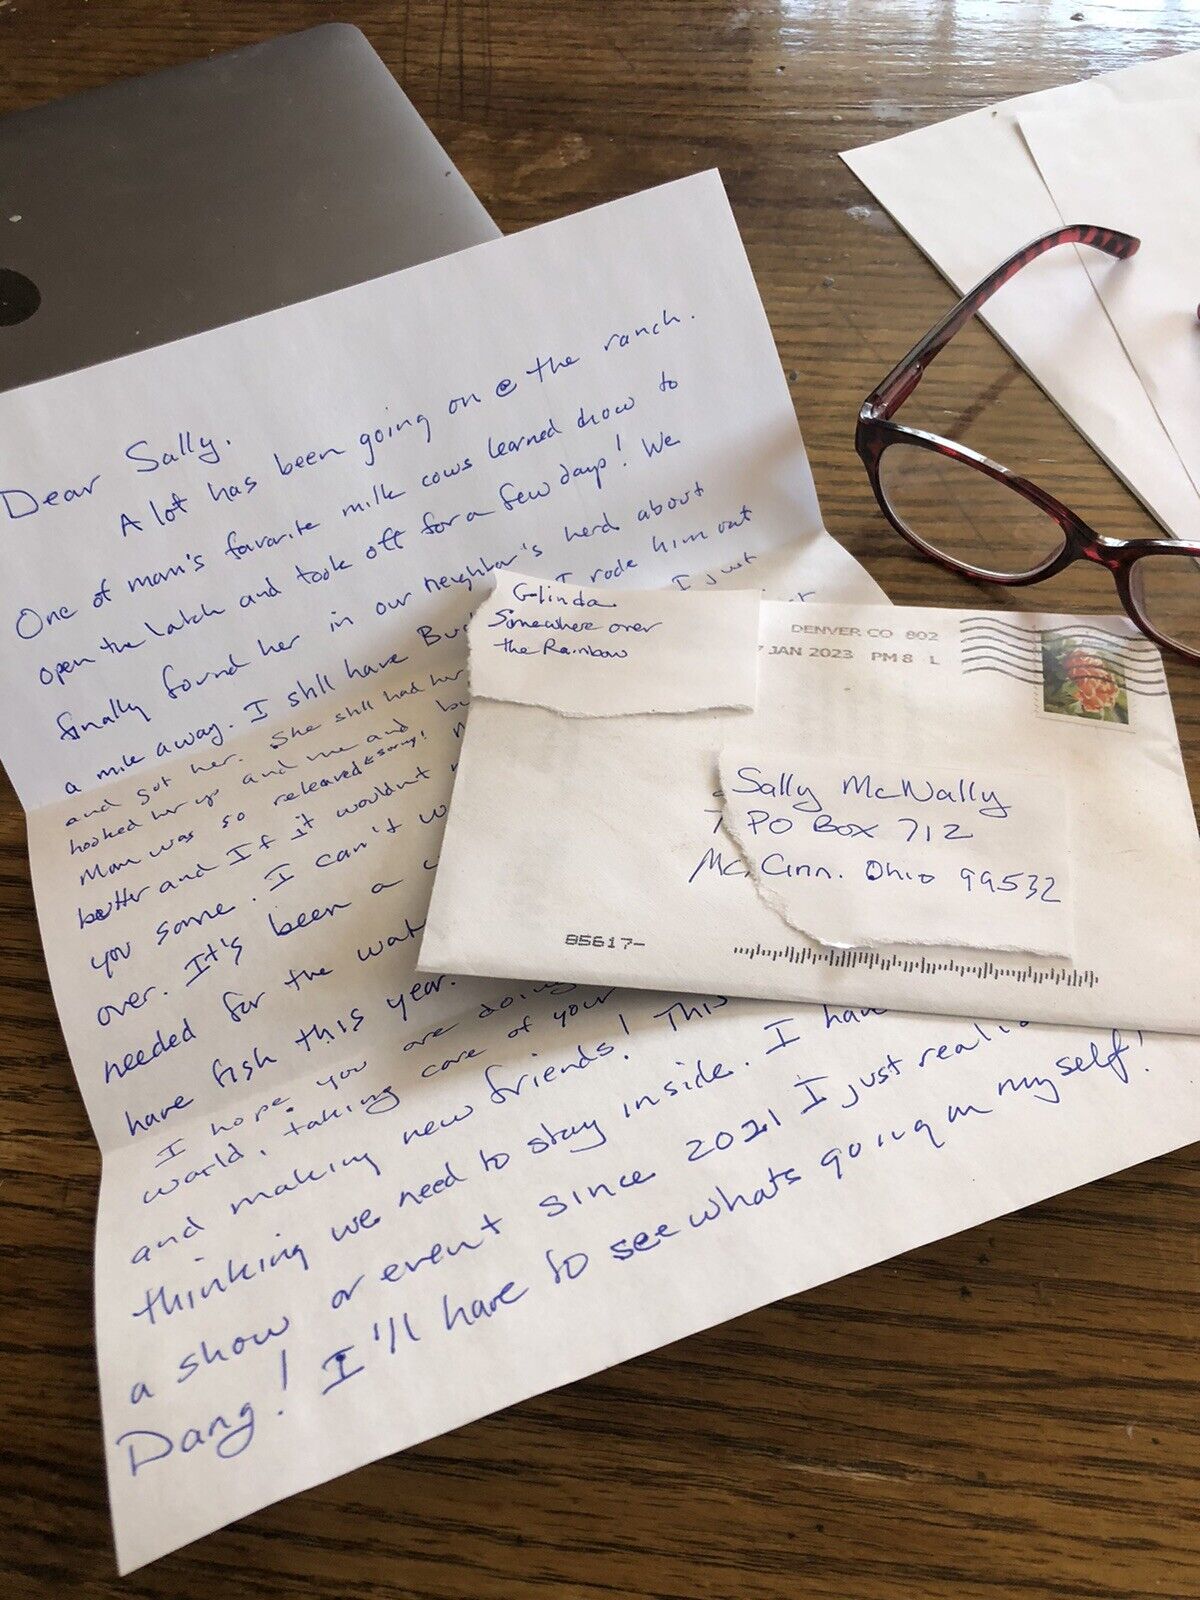 Dear Sally.
A lot has been going on @ the ranch.
One of mom's favorite milk cows learned how to
open the latch and took off for a few days! We
finally found her in our neighbor's herd about
a mile away. I still have Bu I rode him out
and got her. She still had her I just
hooked her up and me and bu
Mom was so released ← sorry!
butter and If it wouldn't
you some. I can't w
over. It's been a
needed for the wat
have fish this year.
I hope you are doing
world, taking care of your
and making new friends! This
thinking we need to stay inside. I hav
a show or event since 2021 I just reali
Dang! I'll have to see whats going on myself!
Glinda
Somewhere over
the Rainbow
DENVER CO 802
7 JAN 2023 PM 8 L
Sally McNally
PO Box 712
Mc Cinn. Ohio 99532
85617-